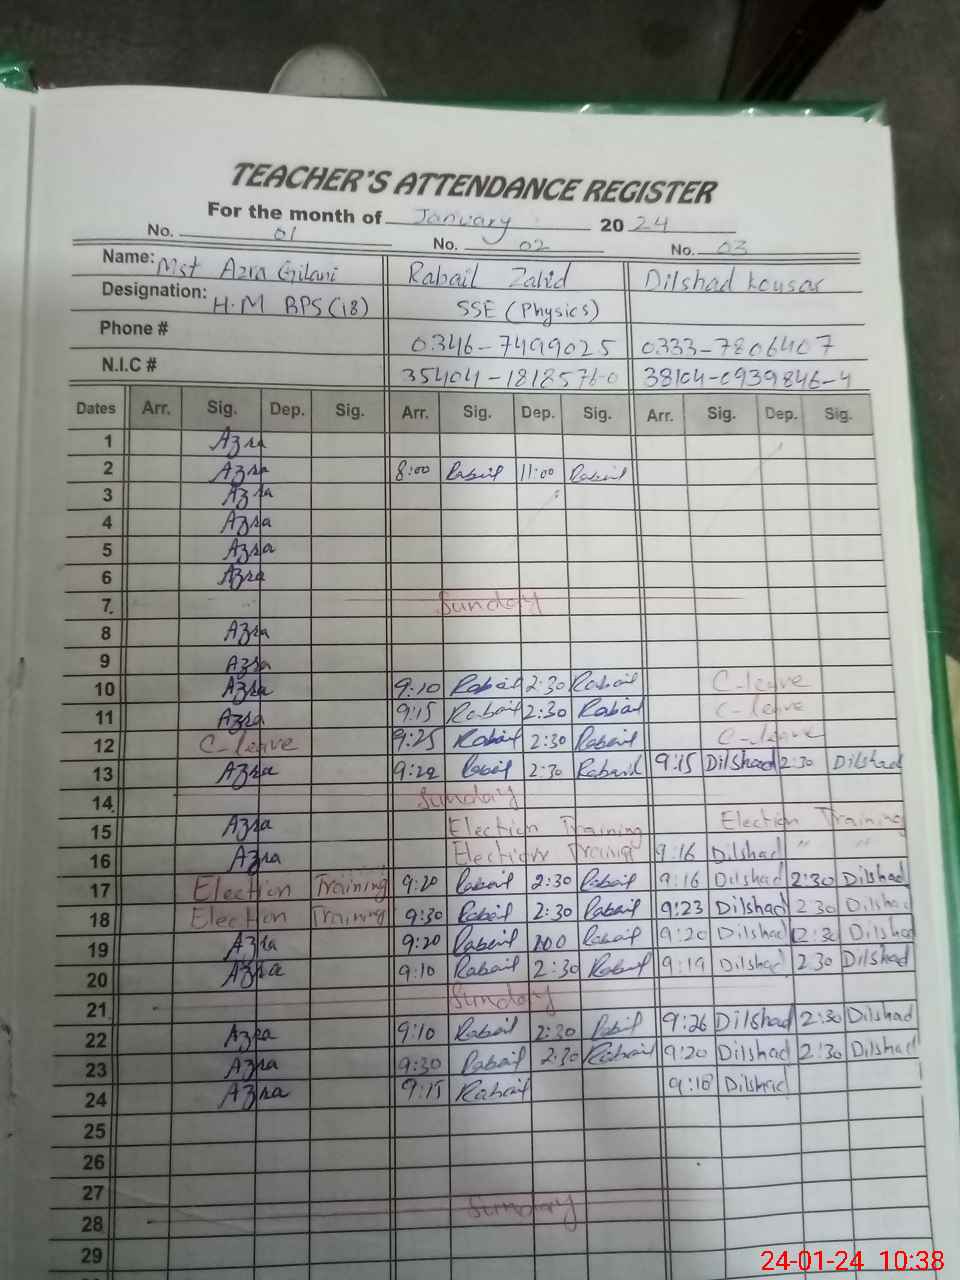 TEACHER'S ATTENDANCE REGISTER
For the month of January 2024
No. 01 No. 02 No. 03
Name: Mst Azra Gilani Rabail Zahid Dilshad Kousar
Designation: H.M BPS (18) SSE (Physics)
Phone # 0346-7499025 0333-7806407
N.I.C # 35404-1818576-0 38104-0939846-4
Dates Arr. Sig. Dep. Sig. Arr. Sig. Dep. Sig. Arr. Sig. Dep. Sig.
1 Azra
2 Azra 8:00 Rabail 11:00 Rabail
3 Azra
4 Azra
5 Azra
6 Azra
7. Sunday
8 Azra
9 Azra
10 Azra 9:10 Rabail 2:30 Rabail C-leave
11 Azra 9:15 Rabail 2:30 Rabail C-leave
12 C-leave 9:25 Rabail 2:30 Rabail C-leave
13 Azra 9:22 Rabail 2:30 Rabail 9:15 Dilshad 2:30 Dilshad
14 Sunday
15 Azra Election Training Election Training
16 Azra Election Training 9:16 Dilshad " "
17 Election Training 9:20 Rabail 2:30 Rabail 9:16 Dilshad 2:30 Dilshad
18 Election Training 9:30 Rabail 2:30 Rabail 9:23 Dilshad 2:30 Dilshad
19 Azra 9:20 Rabail Rabail 9:20 Dilshad 12:30 Dilshad
20 Azra 9:10 Rabail 2:30 Rabail 9:19 Dilshad 2:30 Dilshad
21 Sunday
22 Azra 9:10 Rabail 2:30 Rabail 9:26 Dilshad 2:30 Dilshad
23 Azra 9:30 Rabail 2:30 Rabail 9:20 Dilshad 2:30 Dilshad
24 Azra 9:15 Rabail 9:18 Dilshad
25
26
27
28 Sunday
29
24-01-24 10:38